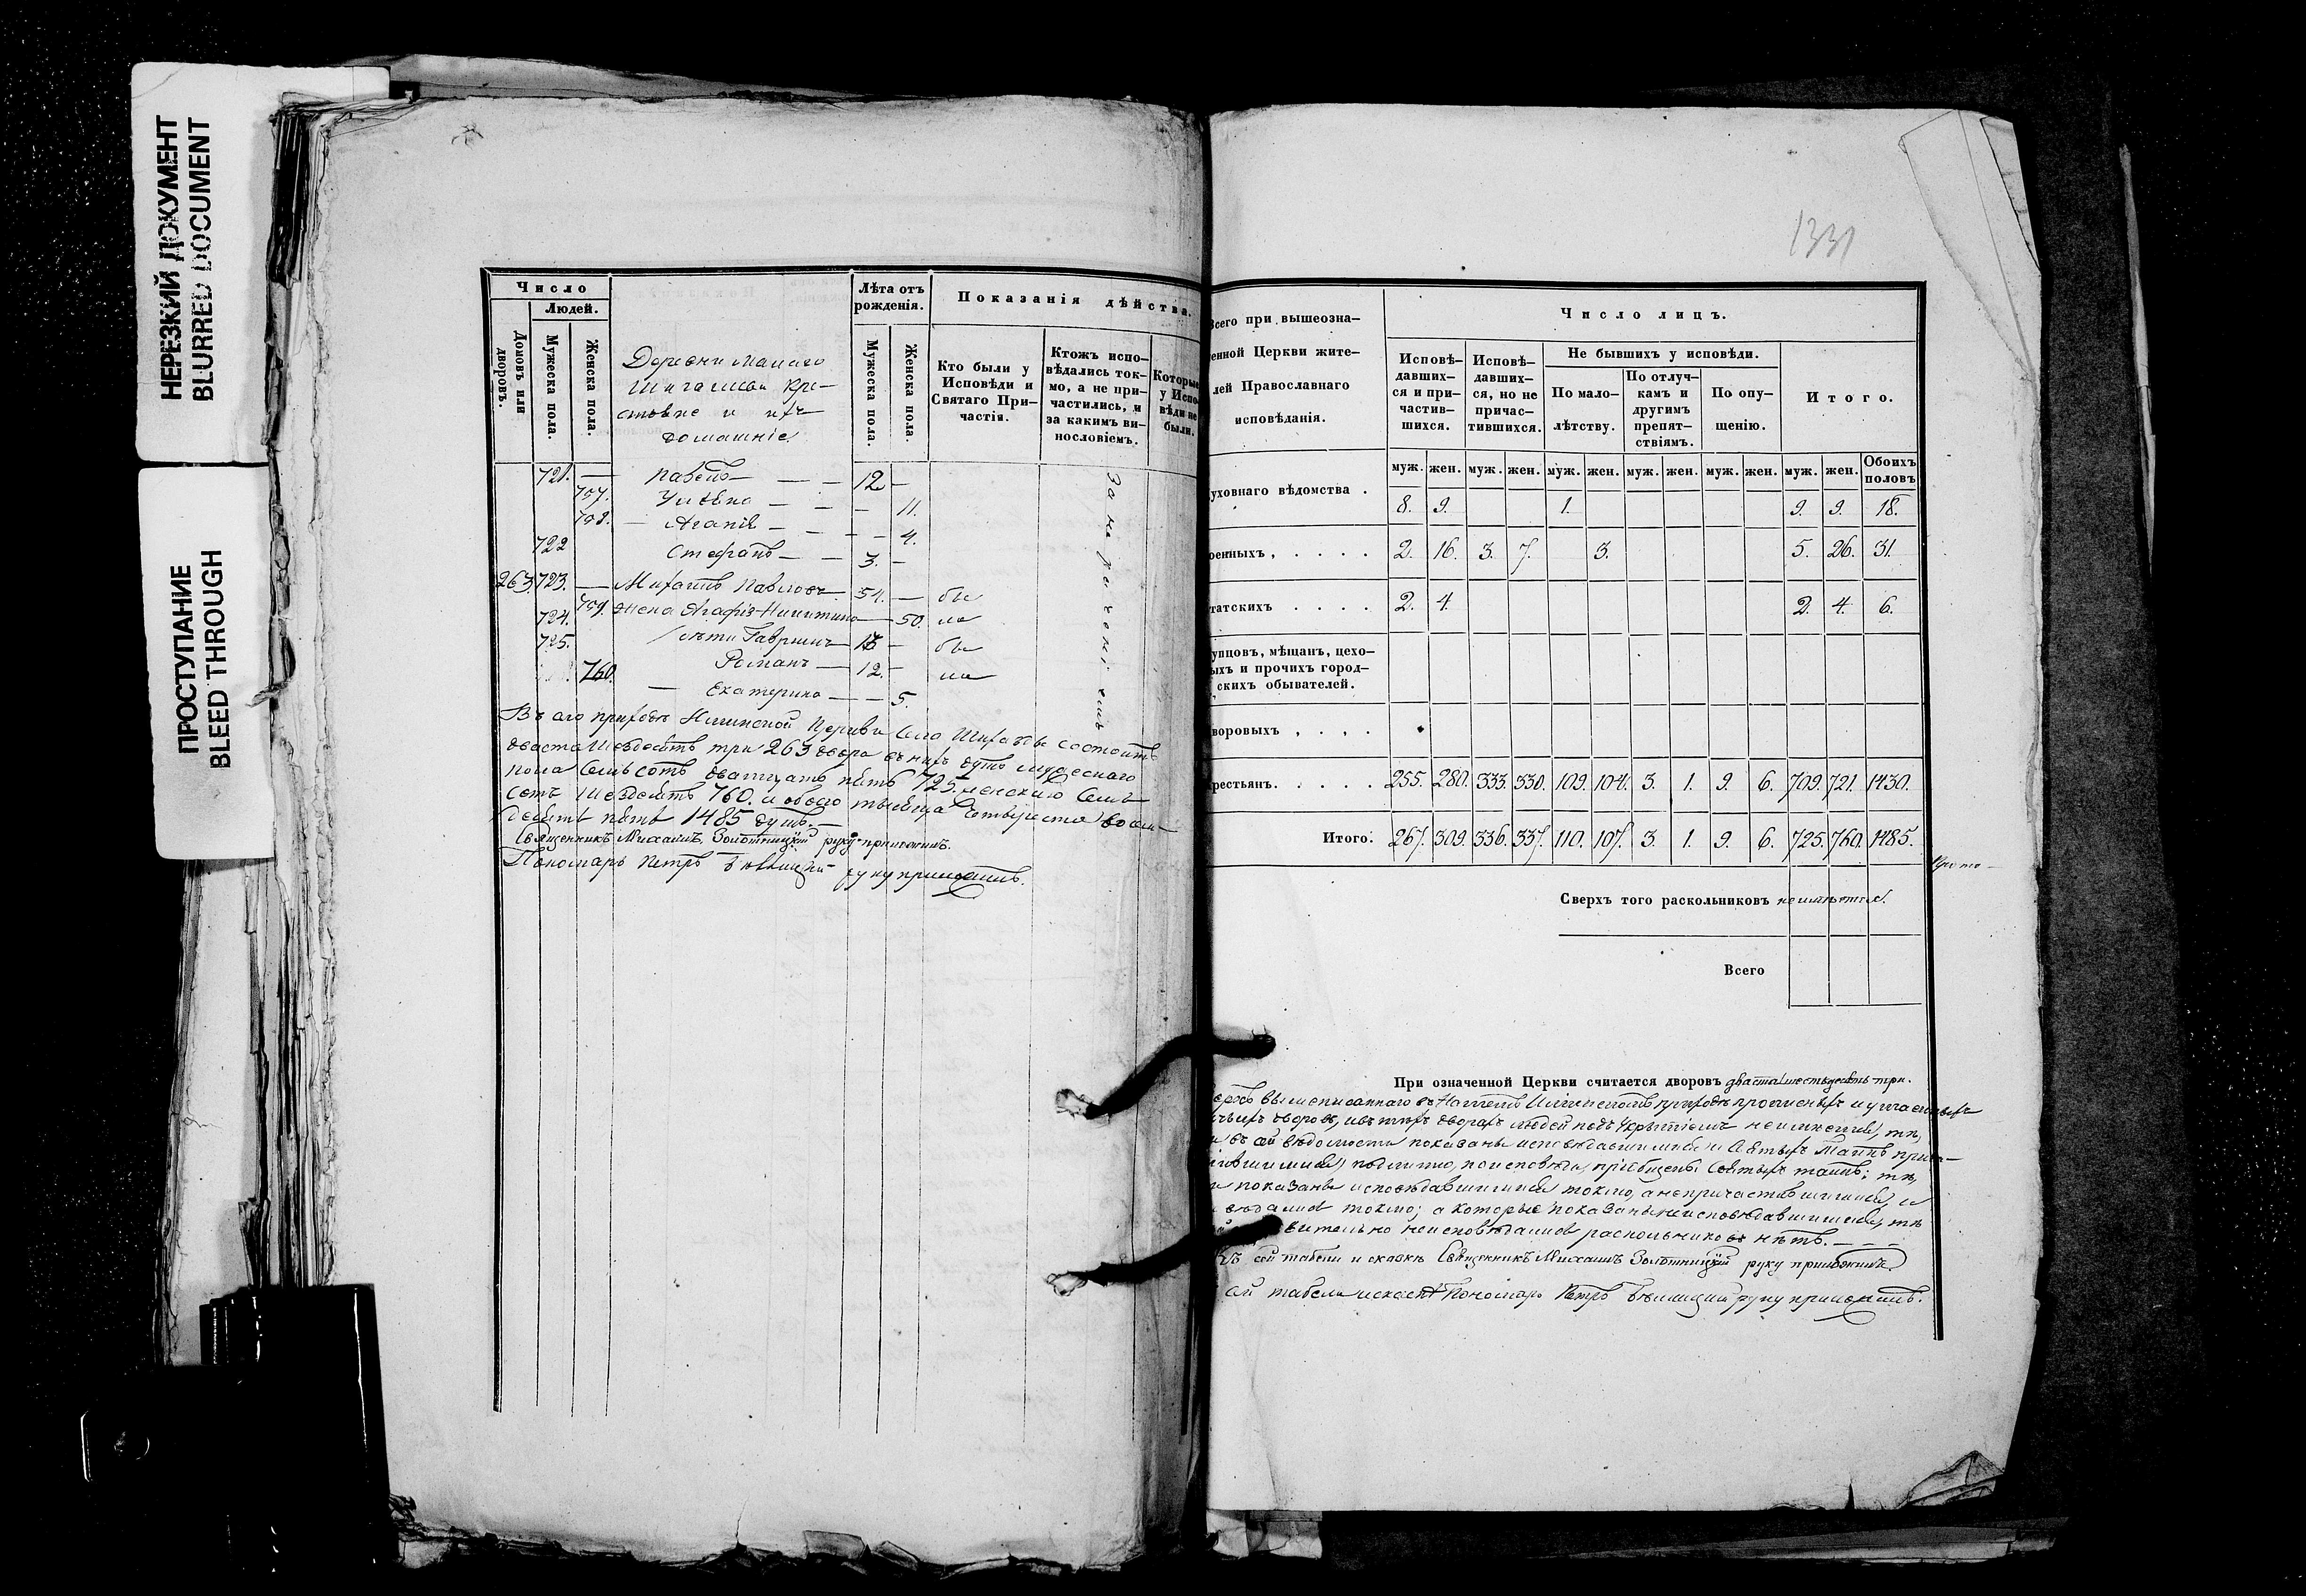 НЕРЕЗКИЙ ДОКУМЕНТ
BLURRED DOCUMENT
ПРОСТУПАНИЕ
BLEED THROUGH
Число
Людей.
Домовъ или дворовъ.
Мужеска пола.
Женска пола.
Деревни Малаго
кре-
стьяне и ихъ
домашніе
Лѣта отъ рожденія.
Мужеска пола.
Женска пола.
Показанія дѣйства.
Кто были у Исповѣди и Святаго При-частія.
Ктожъ испо-вѣдались ток-мо, а не при-частились, и за какимъ ви-нословіемъ.
Которые у Испо-вѣди не были.
721. — Павелъ — 12 —
757. — 11.
758. — Агапія — 4.
722 Стефанъ — 3. —
263. 723. — Михаилъ Павловъ 54. — бы
759. жена Агафія Никитина — 50. ла
724. дѣти Гавриилъ — 18 — бы
725. Романъ — 12. — ла
760. — Екатерина — 5.
Въ сго приходѣ Церкви села состоитъ
двѣста шесдесятъ три 263 двора въ нихъ душъ мужескаго
пола семьсотъ дватцать пять 725. женскаго семь
сотъ шесдесятъ 760. и обоего тысяща четыреста восем
десятъ пять 1485 душъ. —
Священникъ Михаилъ Золотницкій руку приложилъ.
Пономарь Петръ руку приложилъ.
1331
Всего при вышеозна-
енной Церкви жите-
лей Православнаго
исповѣданія.
Число лицъ.
Исповѣ-давших-ся и при-частив-шихся.
Исповѣ-давших-ся, но не причас-тившихся.
Не бывшихъ у исповѣди.
По мало-лѣтству.
По отлуч-камъ и другимъ препят-ствіямъ.
По опу-щенію.
Итого.
муж. жен. муж. жен. муж. жен. муж. жен. муж. жен. муж. жен. Обоихъ половъ
уховнаго вѣдомства . 8. 9. 1. 9. 9. 18.
оенныхъ , . . . . 2. 16. 3. 7. 3. 5. 26. 31.
татскихъ . . . . 2. 4. 2. 4. 6.
упцовъ, мѣщанъ, цехо-
ыхъ и прочихъ город-
скихъ обывателей.
воровыхъ , . , .
рестьянъ. . . . . 255. 280. 333. 330. 109. 104. 3. 1. 9. 6. 709. 721. 1430.
Итого. 267. 309. 336. 337. 110. 107. 3. 1. 9. 6. 725. 760. 1485.
Сверхъ того раскольниковъ неимѣется.
Всего
При означенной Церкви считается дворовъ двѣста шестьдесятъ три.
вышеписаннаго въ приходѣ прописныхъ и
дворовъ, и въ тѣхъ дворахъ людей подъ укрытіемъ неимеется, тѣ,
въ сей вѣдомости показаны исповѣдавшимися и Святыхъ Таинъ
подлинно, по исповѣди, пріобщены Святыхъ таинъ; тѣ,
показаны исповѣдавшимися токмо, а не причастившимися, и
токмо; а которые показаны неисповѣдавшимися, тѣ
неисповѣдались раскольниковъ нѣтъ. — — —
Къ сей табели и сказкѣ Священникъ Михаилъ Золотницкій руку приложилъ
сей табели и Пономарь Петръ руку приложилъ.